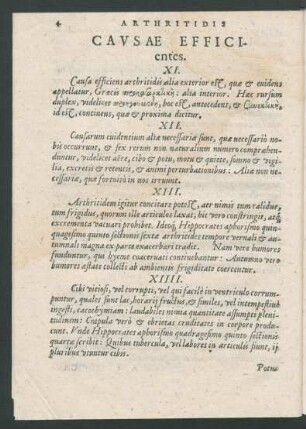 4 ARTHRITIDIS
CAVSAE EFFICI-
entes.
XI.
Causa efficiens arthritidis alia exterior est, quæ & euidens
appellatur, Græcis προκαταρκτική: alia interior. Hæc rursum
duplex, videlicet προηγουμένη, hoc est, antecedens, & Συνεκτική,
id est, continens, quæ & proxima dicitur.
XII.
Causarum euidentium aliæ necessariæ sunt, quæ necessariò no-
bis occurrunt, & sex rerum non naturalium numero comprehen-
duntur, videlicet aëre, cibo & potu, motu & quiete, somno & vigi-
lia, excretis & retentis, & animi perturbationibus: Aliæ non ne-
cessariæ, quæ fortuitò in nos irruunt.
XIII.
Arthritidem igitur concitare potest, aer nimis tum calidus,
tum frigidus, quorum ille articulos laxat, hic verò constringit, atq́
excrementa vacuari prohibet. Ideoq́ Hippocrates aphorismo quin-
quagesimo quinto sectionis sextæ arthritides tempore vernali & au-
tumnali magna ex parte exacerbari tradit. Nam vere humores
funduntur, qui hyeme coacernati continebantur: Autumno verò
humores æstate collecti ab ambientis frigiditate coercentur.
XIIII.
Cibi vitiosi, vel corrupti, vel qui facilè in ventriculo corrum-
puntur, quales sunt lac, horarij fructus, & similes, vel intempestiuè
ingesti, cacochymiam: laudabiles nimia quantitate assumpti pleni-
tudinem: Crapula verò & ebrietas cruditates in corpore produ-
cunt. Vnde Hippocrates aphorismo quadragesimo quinto sectionis
quartæ scribit: Quibus tubercula, vel labores in articulis fiunt, ij
pluribus vtuntur cibis.
Potus